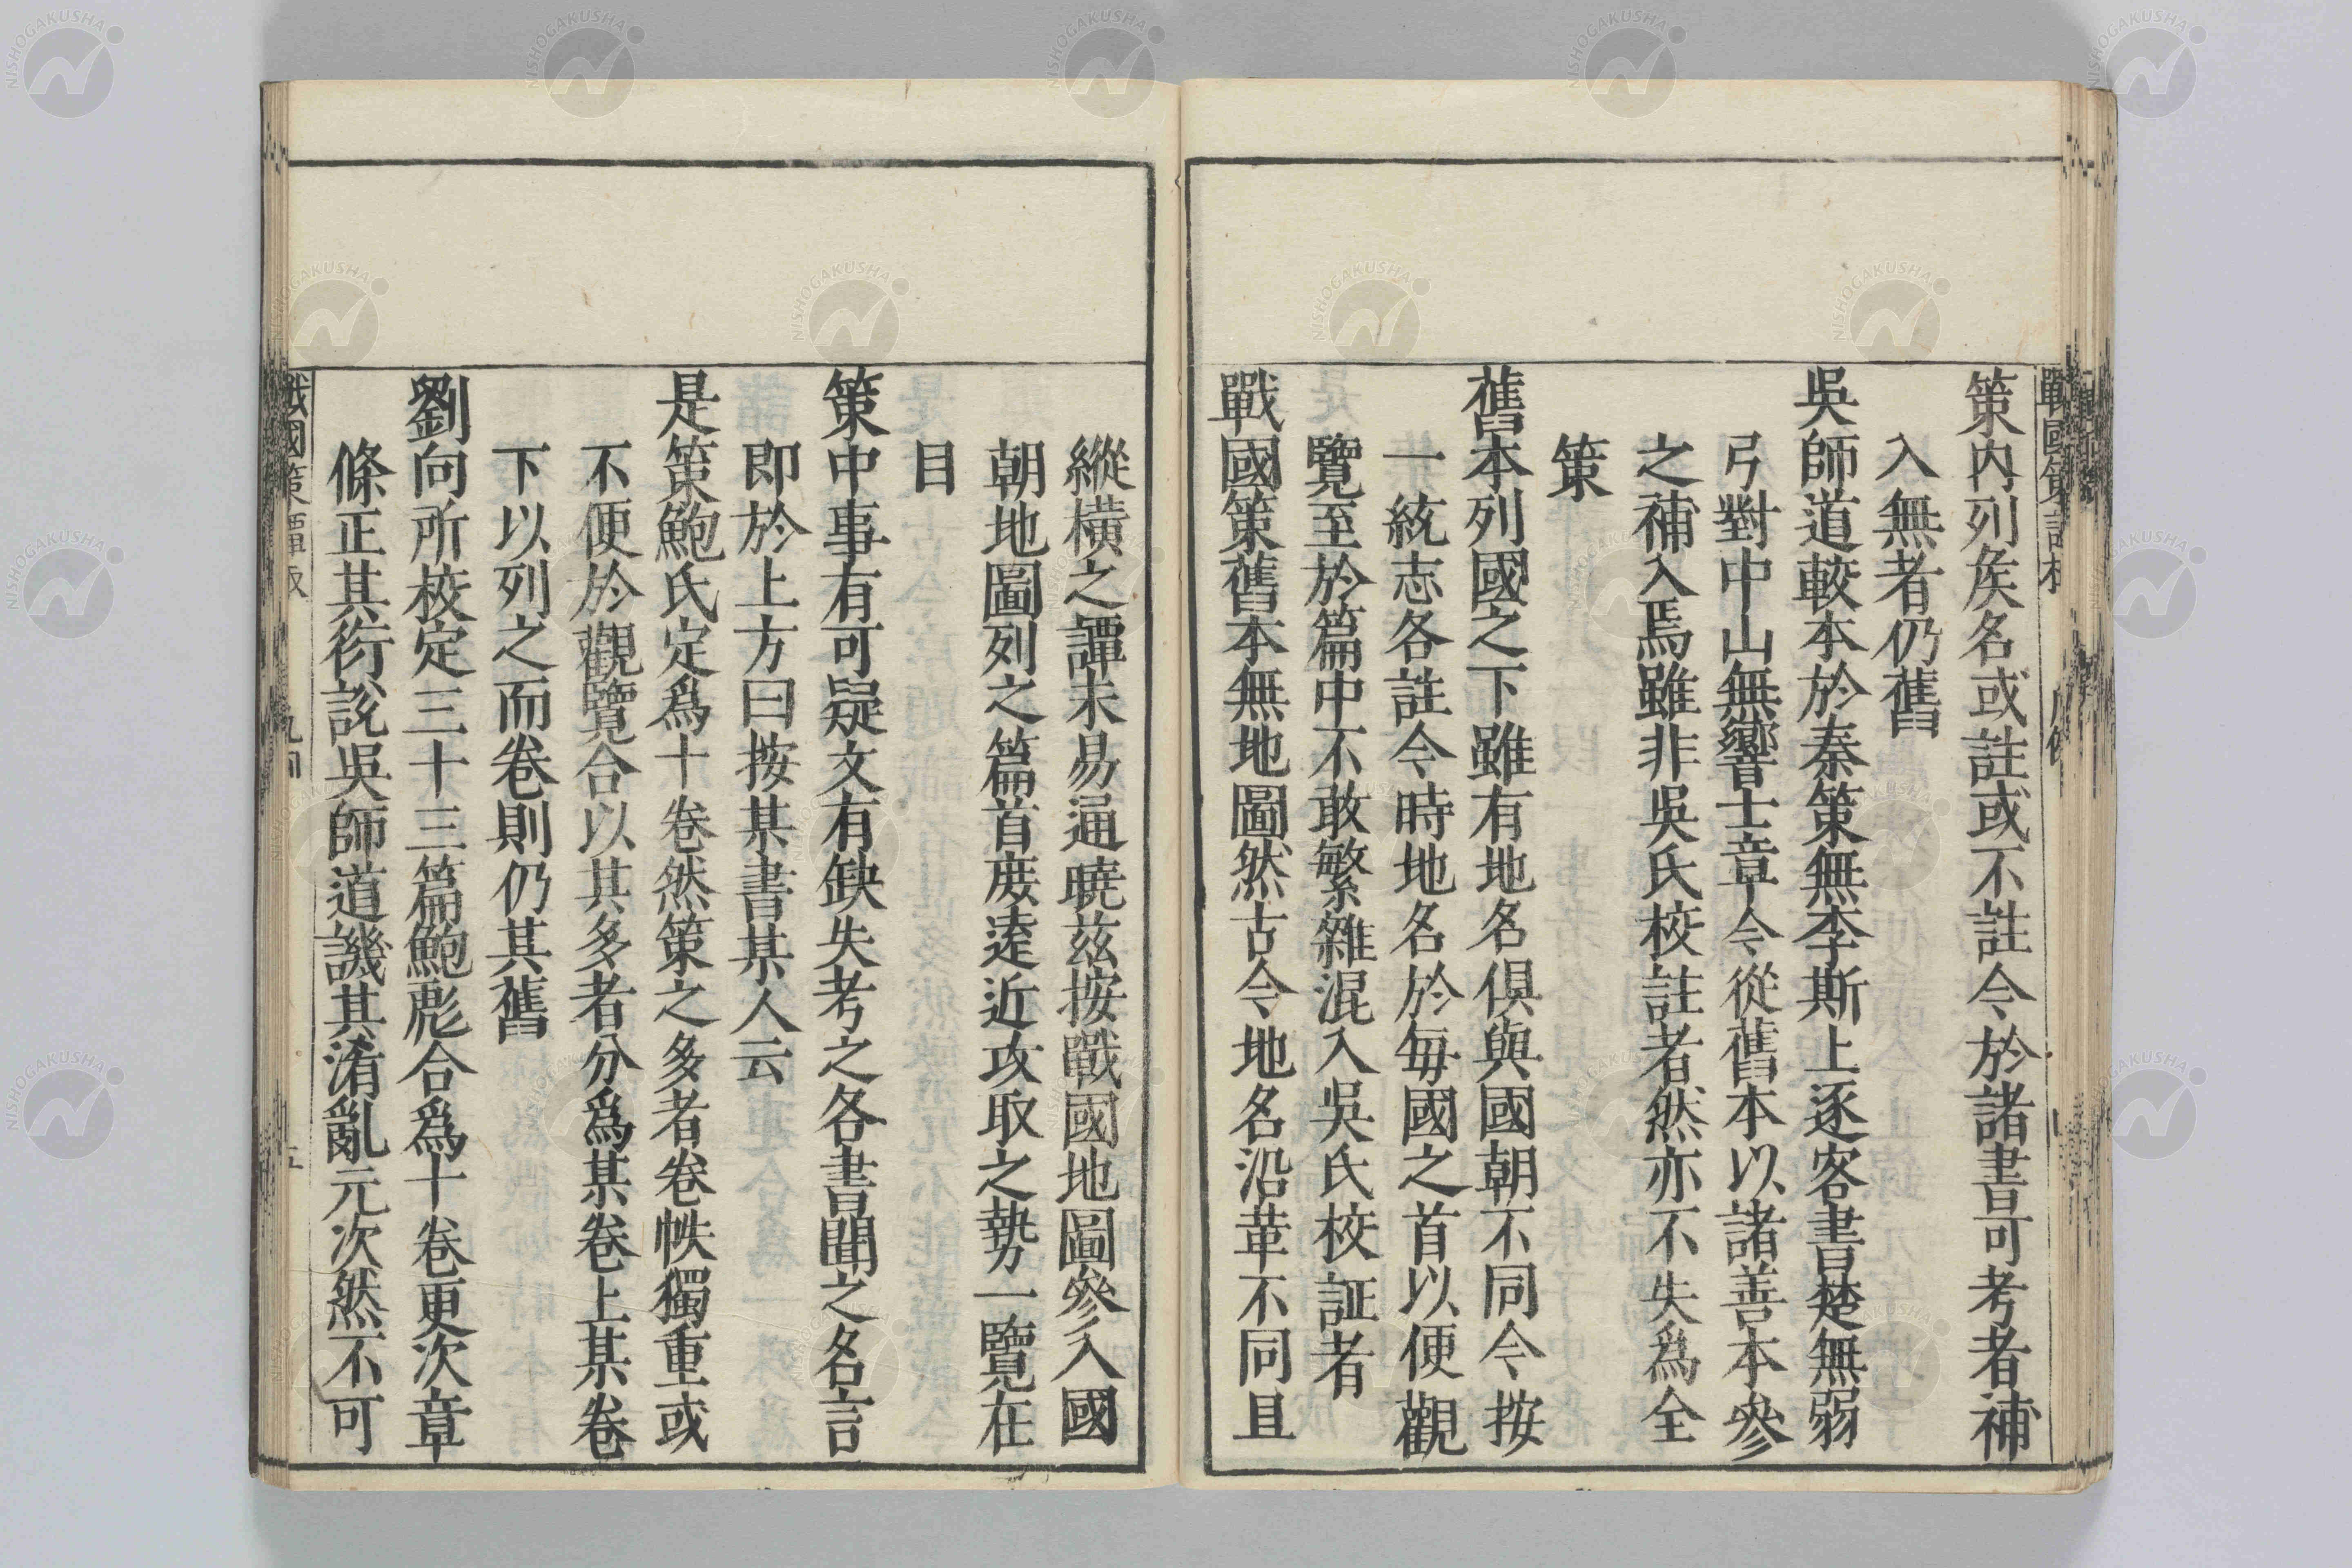 策內列矦名或註或不註今於諸書可考者補
入無者仍舊
吳師道較本於秦策無李斯上逐客書楚無弱
弓對中山無響士章今從舊本以諸善本參
之補入焉雖非吳氏校註者然亦不失爲全
策
舊本列國之下雖有地名俱與國朝不同今按
一統志各註今時地名於每國之首以便觀
覽至於篇中不敢繁雜混入吳氏校証者
戰國策舊本無地圖然古今地名沿革不同且
縱橫之譚未易通曉茲按戰國地圖參入國
朝地圖列之篇首庶遠近攻取之勢一覽在
目
策中事有可疑文有缺失考之各書聞之名言
即於上方曰按某書某人云
是策鮑氏定爲十卷然策之多者卷帙獨重或
不便於觀覽合以其多者分爲某卷上某卷
下以列之而卷則仍其舊
劉向所校定三十三篇鮑彪合爲十卷更次章
條正其衍說吳師道譏其淆亂元次然不可
戰國策譚
NISHOGAKUSHA